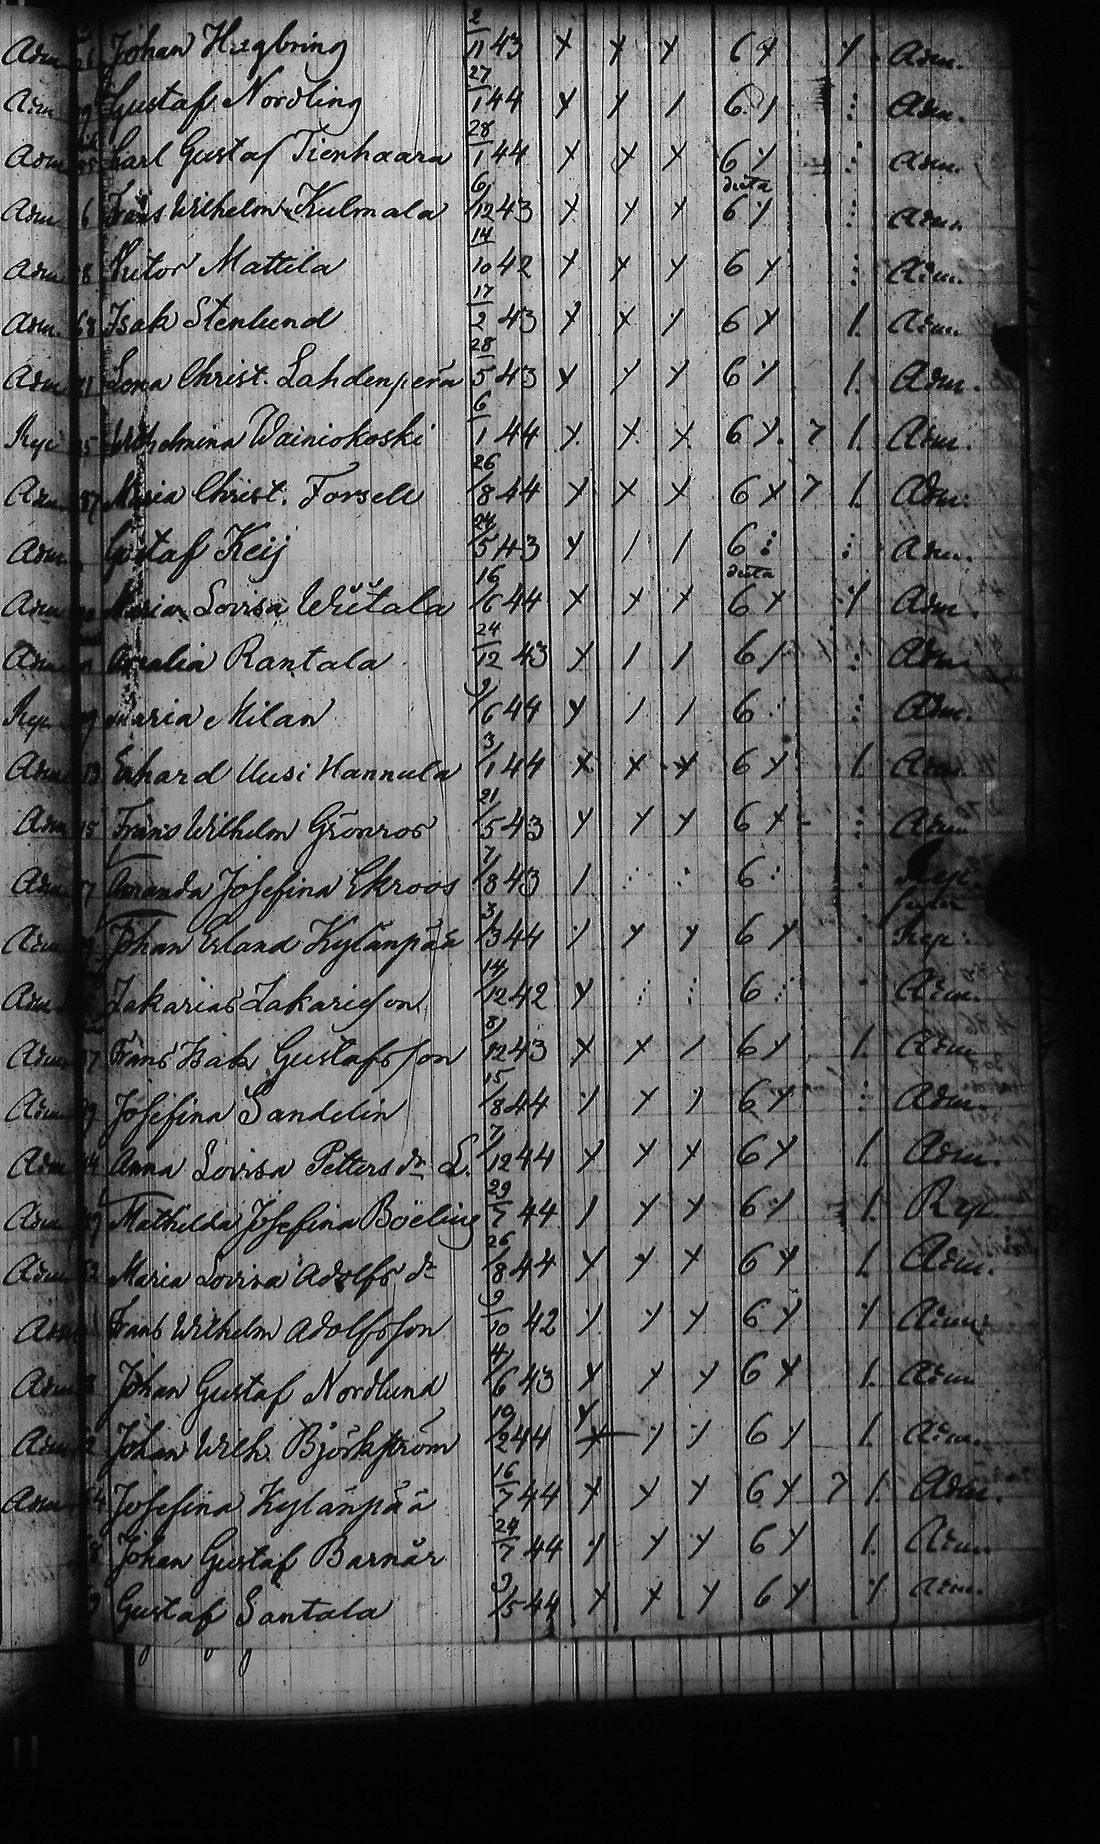 Adm 26 Johan Hagbring 2/11 43 x x x 6 x x. Adm.
Adm 29 Gustaf Nordling 27/1 44 x x / 6 / : Adm.
Adm 35 Carl Gustaf Tienhaara 28/1 44 x x x 6 x : Adm.
duta
Adm 6 Frans Wilhelm Kulmala 6/12 43 x x x 6 x : Adm.
Adm 8 Victor Mattila 14/10 42 x x x 6 x : Adm.
Adm. 68 Isak Stenlund 17/2 43 x x x 6 x /. Adm.
Adm 71 Lena Christ. Lahdenperä 28/5 43 x x x 6 x /. Adm.
Rep 75 Wilhelmina Wainiokoski 6/1 44 x x x 6 x. 7 /. Adm.
Adm. 87 Maria Christ. Forsell 26/8 44 x x x 6 x 7 /. Adm.
Adm. Gustaf Keij 24/5 43 x / / 6 : : Adm.
duta
Adm Maria Lovisa Wiitala 16/6 44 x x x 6 x x Adm.
Adm Amalia Rantala 24/12 43 x / / 6 / : Adm.
Rep Maria Milan 9/6 44 x / / 6 : : Adm.
Adm 13 Erhard Uusi Hannula 3/1 44 x x x 6 x /. Adm.
Adm 15 Frans Wilhelm Grönroos 21/5 43 x x x 6 x - : Adm
Adm. 17 Amanda Josefina Ekroos 7/8 43 / : : 6 : : Rep
Adm. 19 Johan Erland Kylänpää 3/3 44 x x x 6 x . Rep.
Adm. Zakarias Zakariesson 14/12 42 x : : 6 : . Adm.
Adm 37 Frans Isak Gustafsson 8/12 43 x x / 6 x /. Adm
Adm 39 Josefina Sandelin 15/8 44 x x x 6 x : Adm.
Adm 44 Anna Lovisa Petters dr L. 7/12 44 x x x 6 x /. Adm.
Adm 49 Mathilda Josefina Böeling 29/7 44 / x x 6 x /. Rep.
Adm 52 Maria Lovisa Adolfs dr 26/8 44 x x x 6 x /. Adm.
Adm Frans Wilhelm Adolfsson 9/10 42 x x x 6 x x Adm.
Adm 8 Johan Gustaf Nordlund 4/6 43 x x x 6 x /. Adm
Adm 2 Johan Wilh. Björkström 19/2 44 x x x 6 x /. Adm.
Adm 64 Josefina Kylänpää 16/7 44 x x x 6 x 7 /. Adm.
8 Johan Gustaf Barnär 24/7 44 x x x 6 x /. Adm.
9 Gustaf Santala 9/5 44 x x x 6 x x Adm.